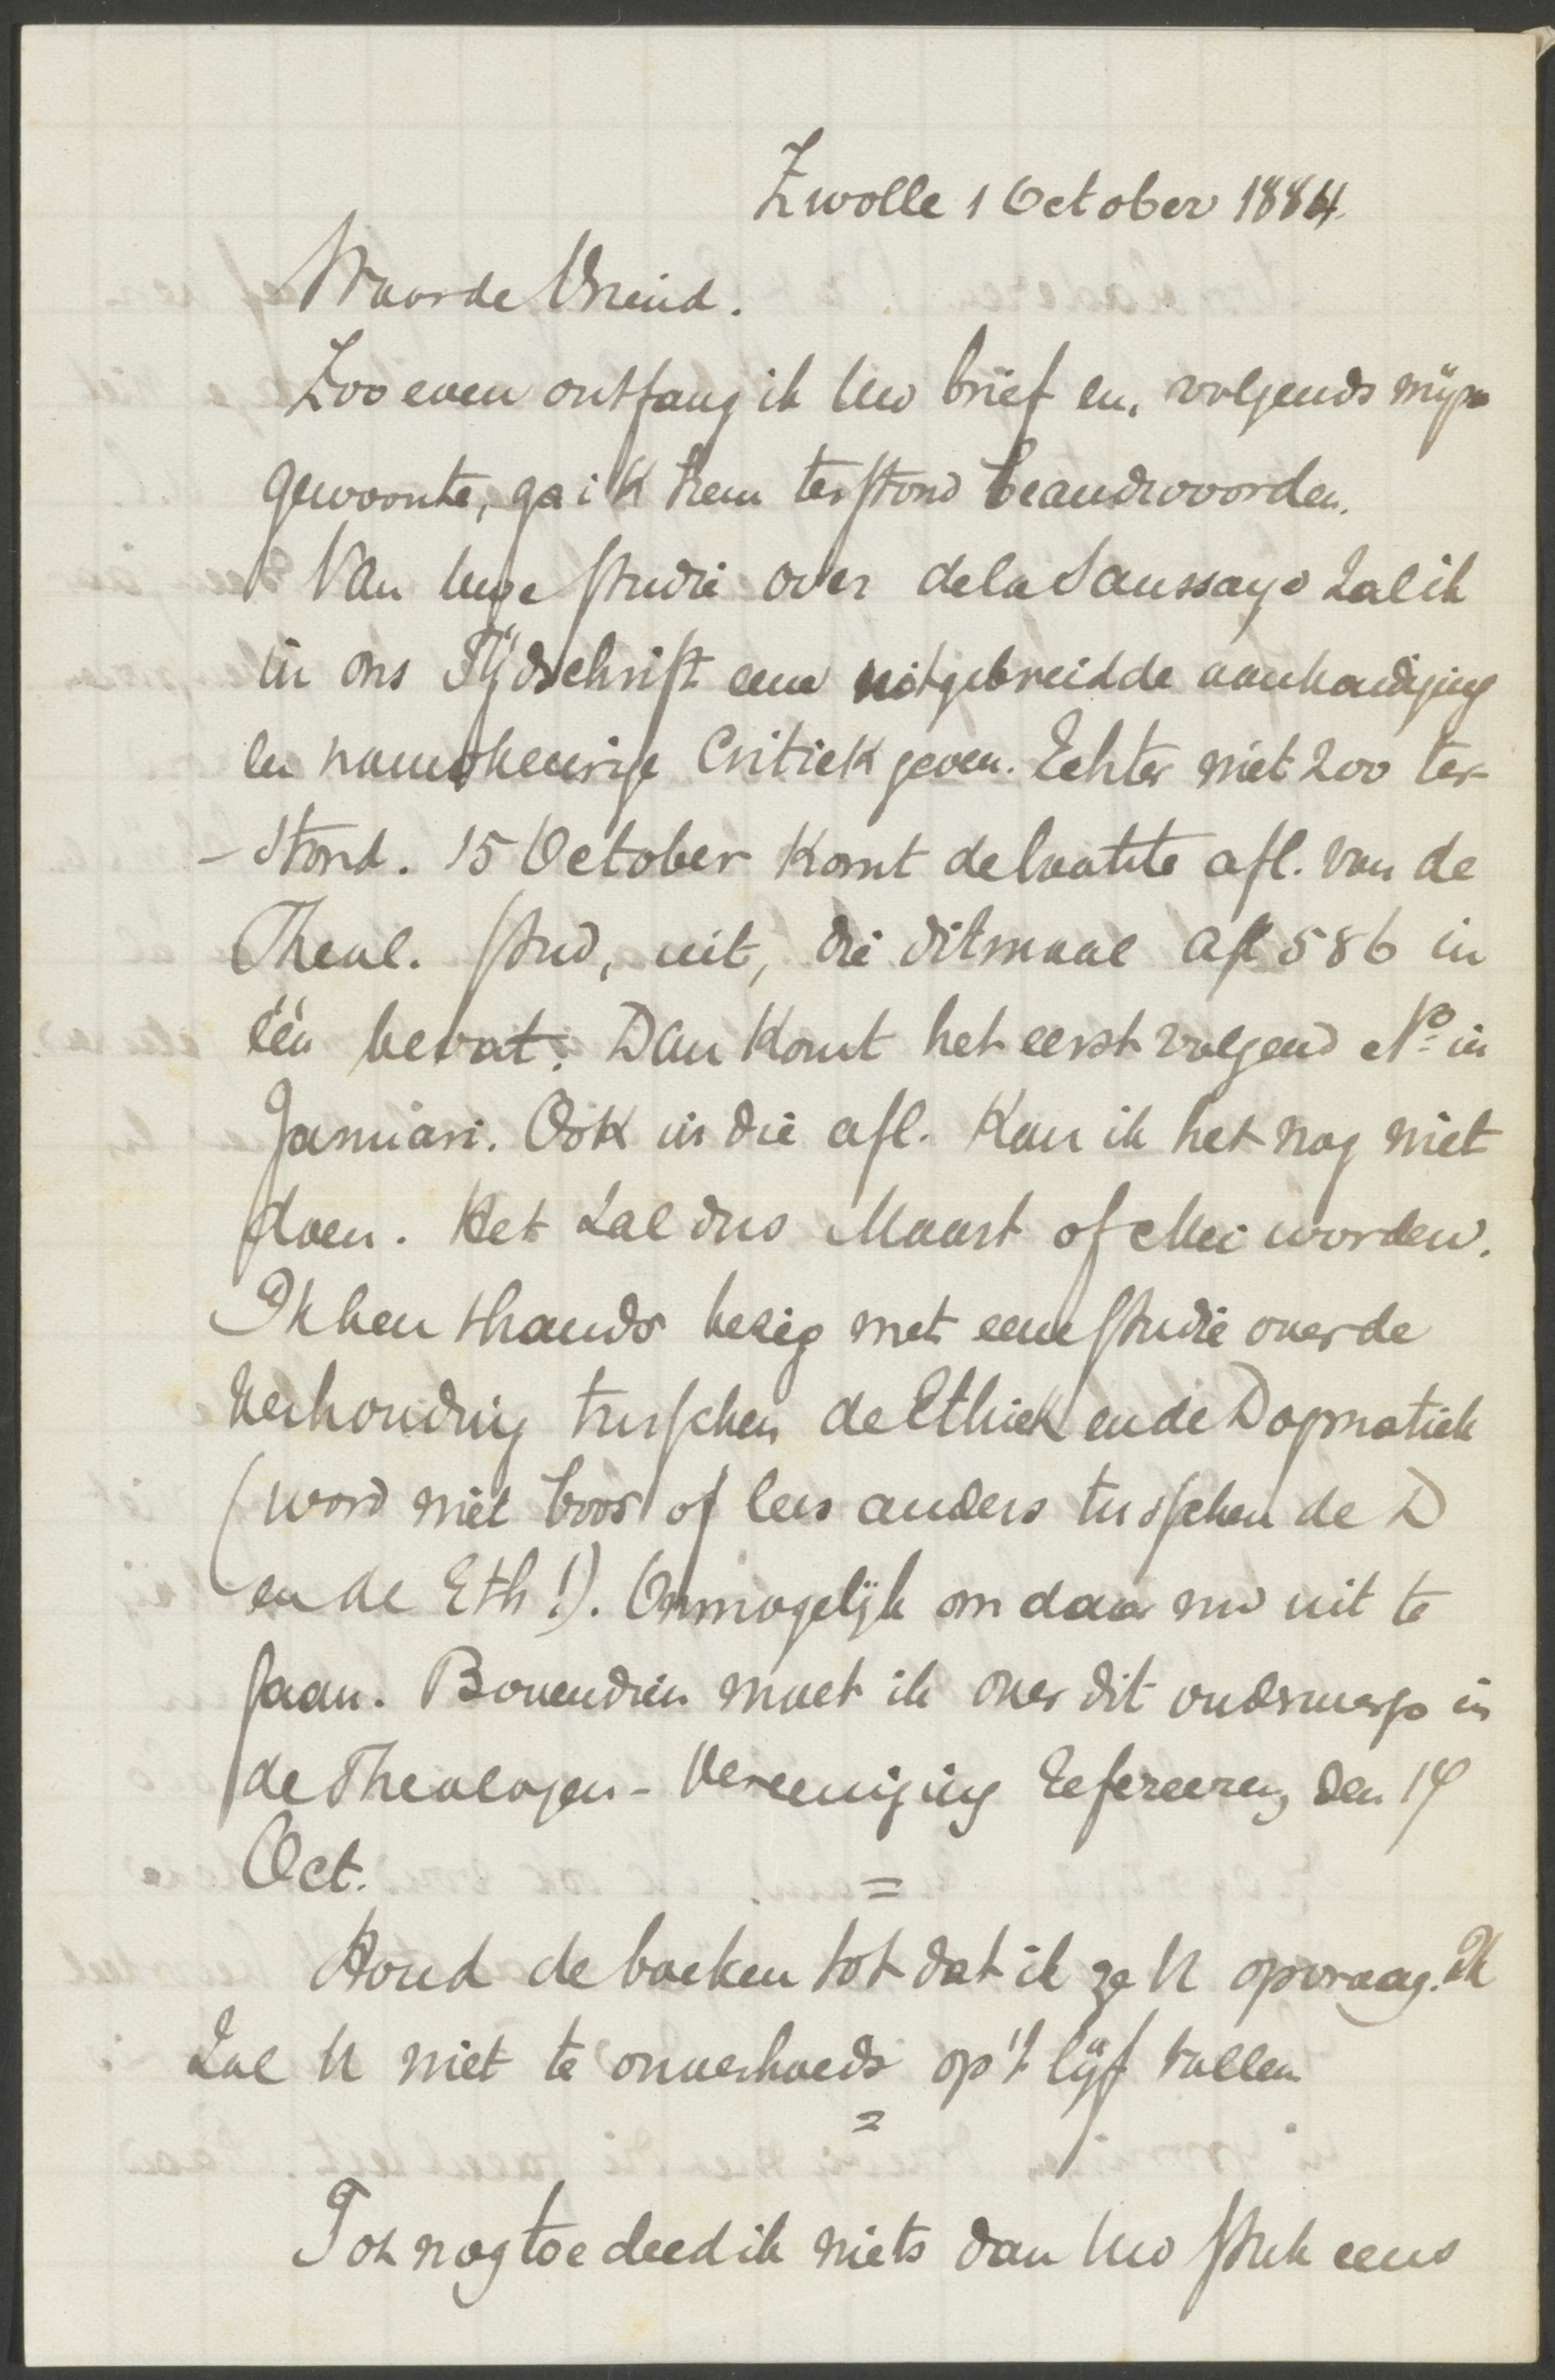 Zwolle 1 October 1884.
Waarde Vriend.
Zoo even ontfang ik Uw brief en, volgends mijn
gewoonte, ga ik hem terstond beandwoorden.
Van Uwe studie over de la Saussaye zal ik
in ons Tijdschrift eene uitgebreidde aankondiging
en nauwkeurige Critiek geven. Echter niet zoo ter-
-stond. 15 October komt de laatste afl. van de
Theol. Stud, uit, die ditmaal afl 5 & 6 in
één bevat. Dan komt het eerst volgend No in
Januari. Ook in die afl. kan ik het nog niet
doen. Het zal dus Maart of Mei worden.
Ik ben thands bezig met eene studie over de
verhouding tusschen de Ethiek en de Dogmatiek
(word niet boos of lees anders tusschen de D
en de Eth!). Onmogelijk om daar nu uit te
gaan. Bovendien moet ik over dit onderwerp in
de Theologen-Vereeniging refereeren, den 14
Oct. =
Houd de boeken tot dat ik ze U opvraag. Ik
zal U niet te onverhoeds op 't lijf vallen
=
Tot nog toe deed ik niets dan Uw stuk eens